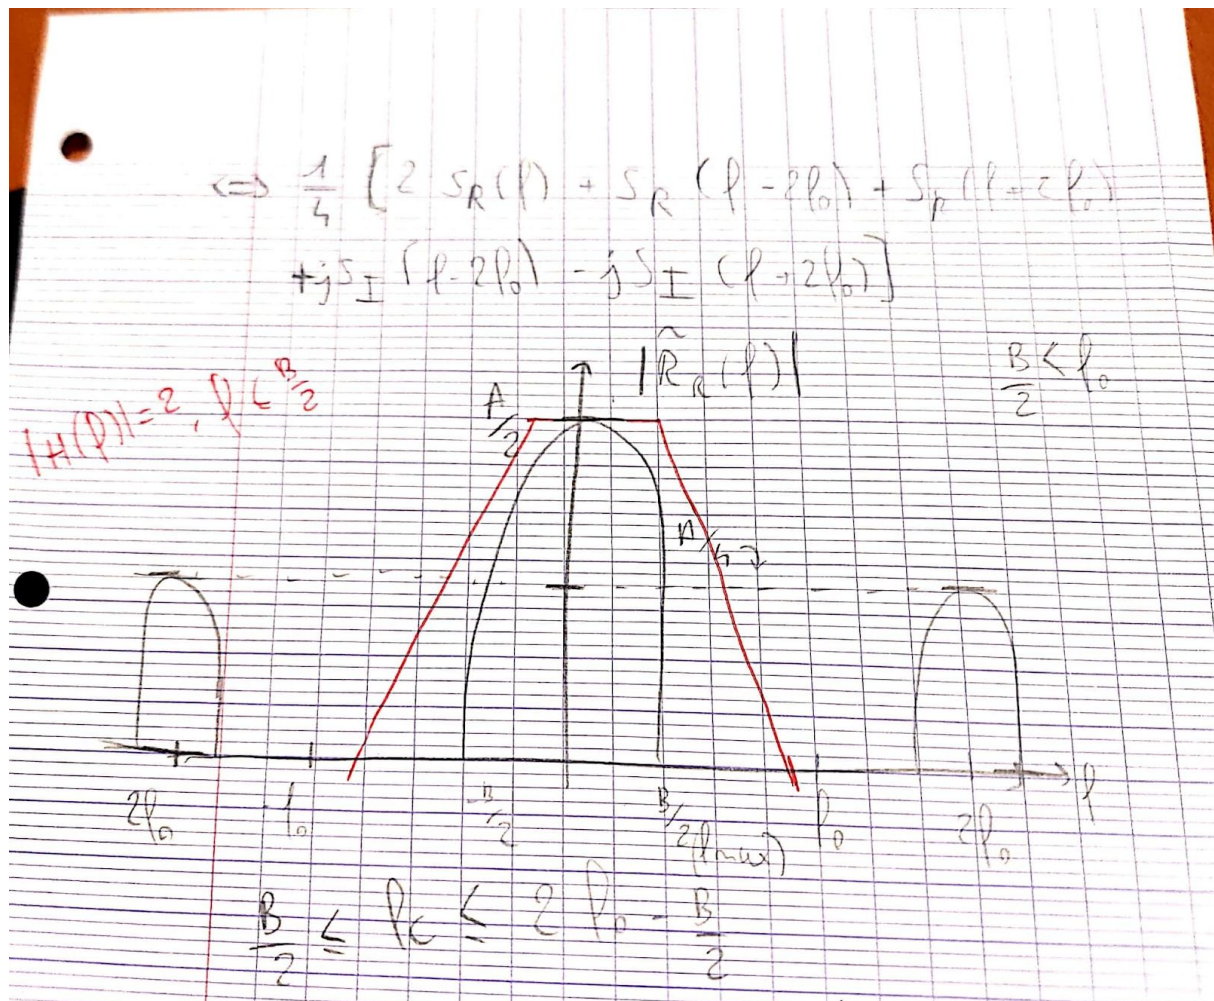 <=> 1/4 [2 S_R(f) + S_R(f-2f₀) + S_R(f+2f₀)
+jS_I(f-2f₀) - jS_I(f+2f₀)]
|R̃_R(f)|
B/2 < f₀
|H(f)|=2, f < B/2
A/2
A/4
2f₀ -f₀ -B/2 B/2 (fmax) f₀ 2f₀ f
B/2 ≤ fc ≤ 2f₀ - B/2